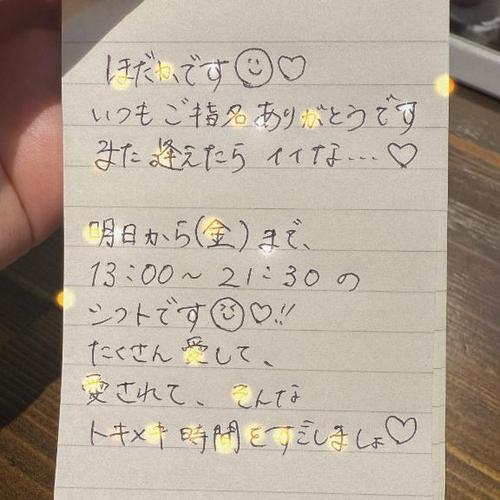 ほだかです☺♡
いつもご指名ありがとうです
また逢えたら イイナ...♡
明日から(金)まで、
13:00〜21:30の
シフトです☺♡!!
たくさん愛して、
愛されて、そんな
トキメキ時間をすごしましょ♡